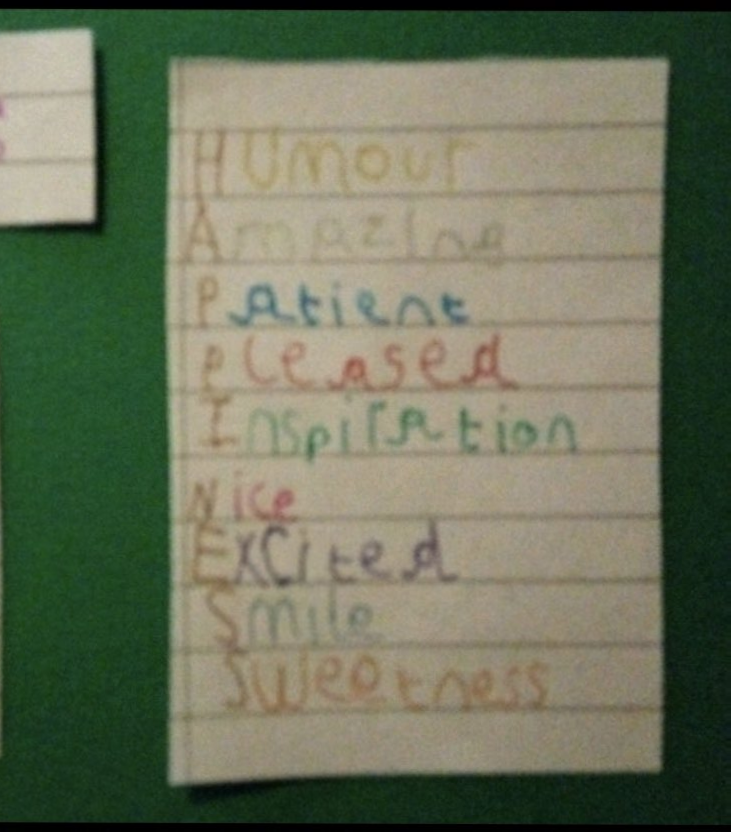 HUmour
Amazing
Patient
Pleased
Inspiration
Nice
Excited
Smile
Sweetness